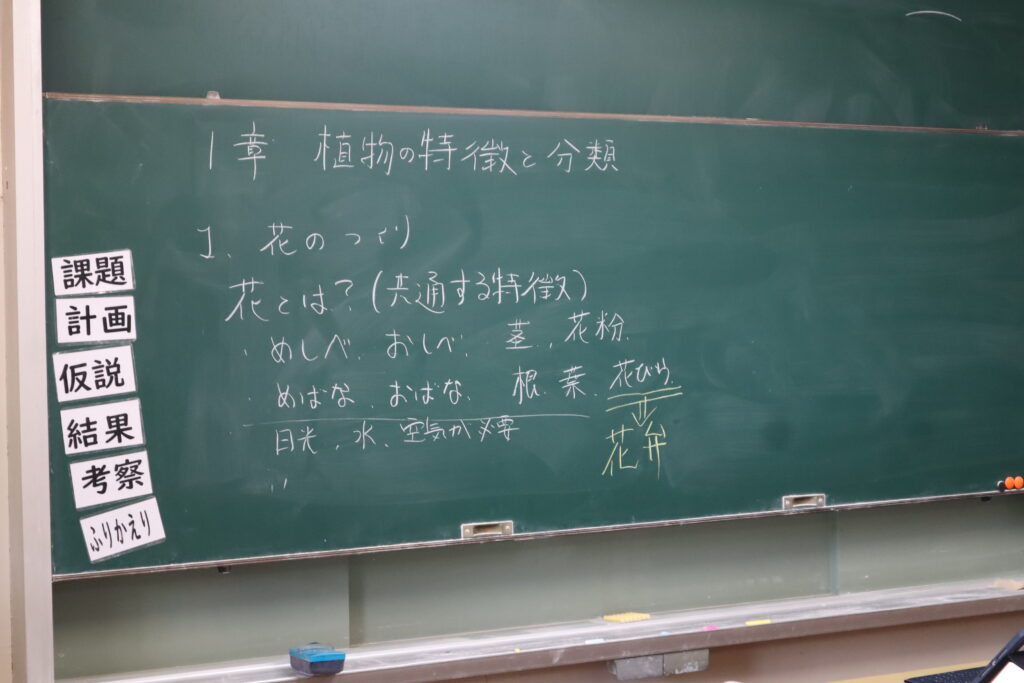 1章 植物の特徴と分類
1、花のつくり
花とは?(共通する特徴)
・めしべ、おしべ、茎、花粉、
・めばな、おばな、根、葉、花びら、
⇓
花弁
日光、水、空気が必要
課題
計画
仮説
結果
考察
ふりかえり